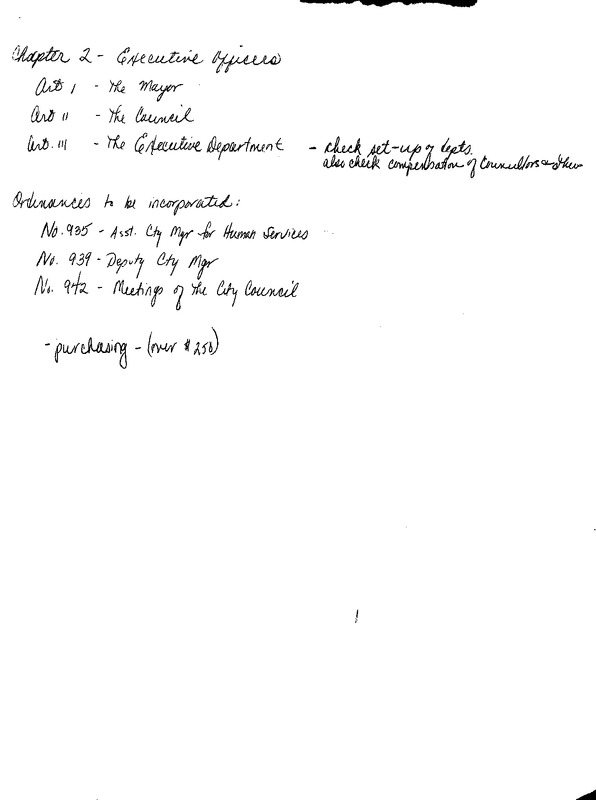 Chapter 2 - Executive Officers
Art I - The Mayor
Art II - The Council
Art. III - The Executive Department - check set-up of depts.
also check compensation of Councillors &
Ordinances to be incorporated:
No. 935 - Asst. Cty Mgr for Human Services
No. 939 - Deputy Cty Mgr
No. 942 - Meetings of the City Council
- purchasing - (over $250)